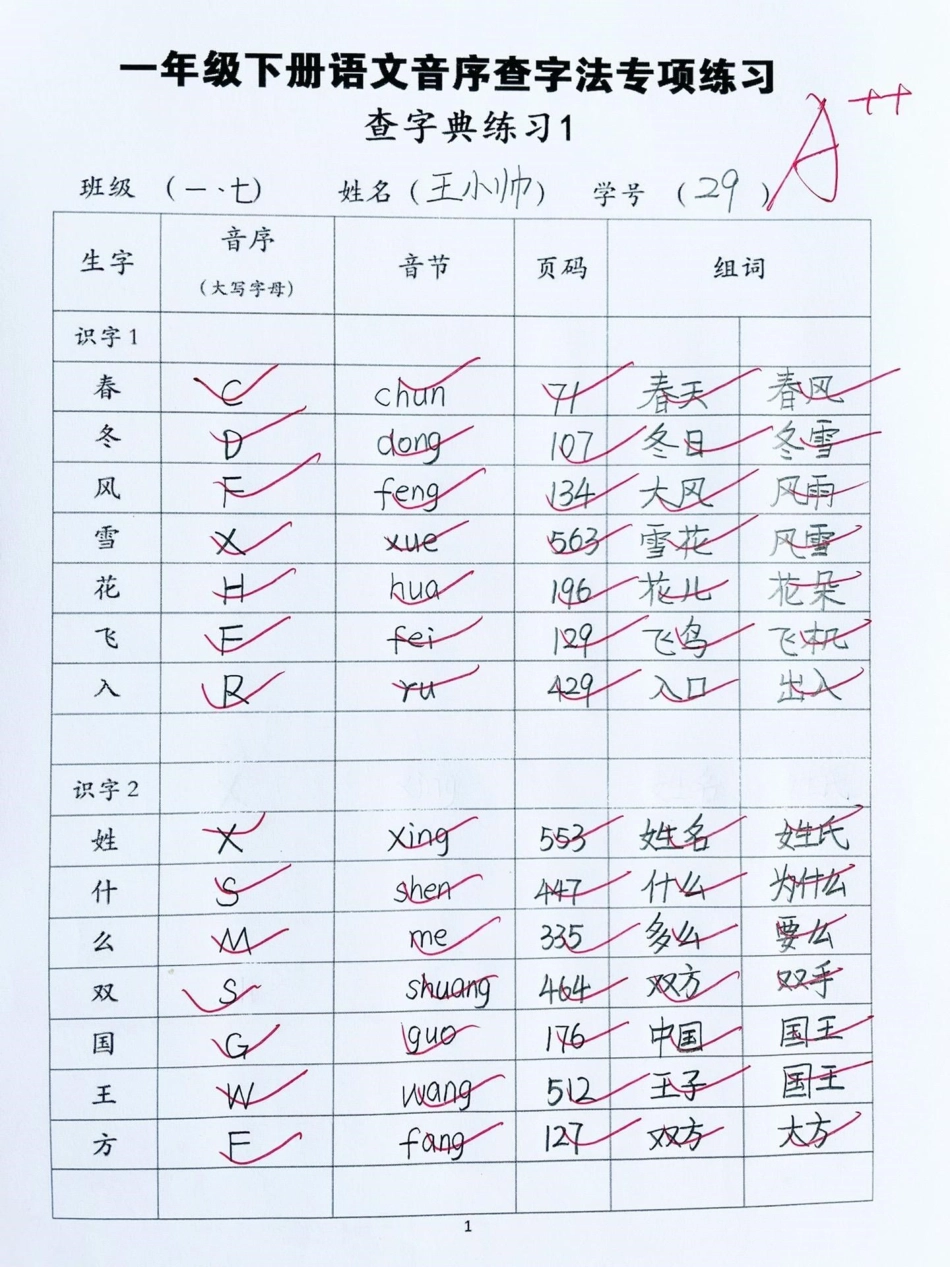 一年级下册语文音序查字法专项练习
查字典练习1
A++
班级 (一、七) 姓名 (王小帅) 学号 (29)
生字 音序 (大写字母) 音节 页码 组词
识字1
春 C chun 71 春天 春风
冬 D dong 107 冬日 冬雪
风 F feng 134 大风 风雨
雪 X xue 563 雪花 风雪
花 H hua 196 花儿 花朵
飞 F fei 129 飞鸟 飞机
入 R ru 429 入口 出入
识字2
姓 X xing 553 姓名 姓氏
什 S shen 447 什么 为什么
么 M me 335 多么 要么
双 S shuang 464 双方 双手
国 G guo 176 中国 国王
王 W wang 512 王子 国王
方 F fang 127 双方 大方
1